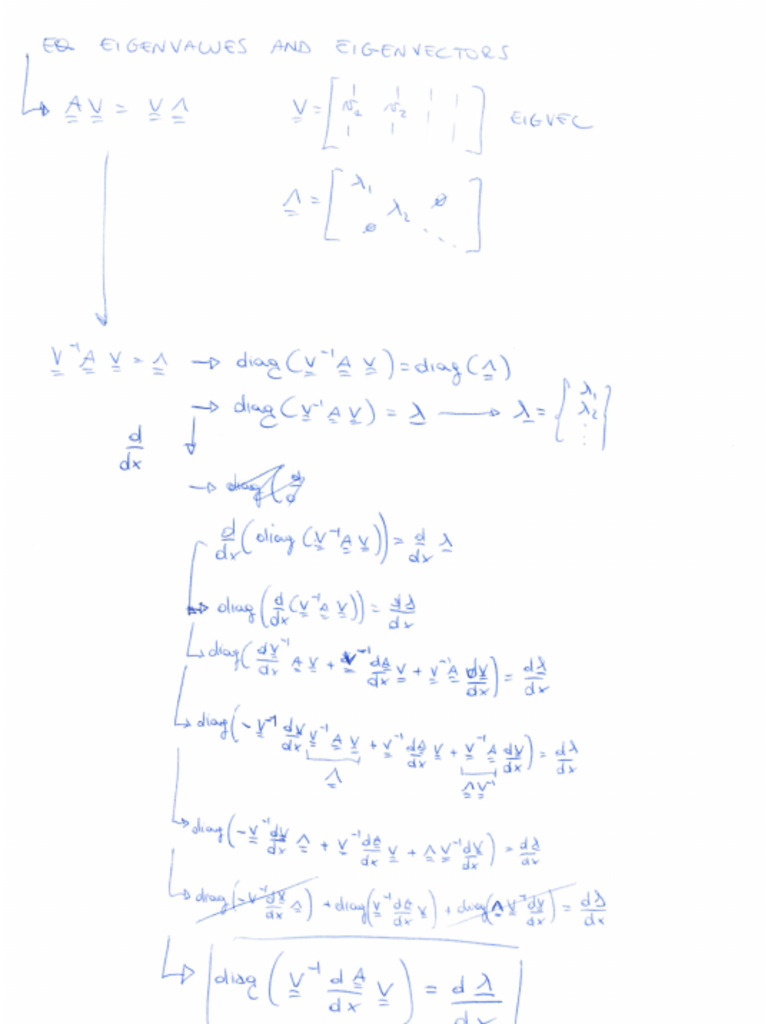 EQ EIGENVALUES AND EIGENVECTORS
A V = V Λ    V = [ v₂ v₂ ] EIGVEC
Λ = [ λ₁ λ₂ ⋱ ø ø ]
V⁻¹ A V = Λ → diag(V⁻¹ A V) = diag(Λ)
→ diag(V⁻¹ A V) = λ → λ = { λ₁ λ₂ ⋮ }
d/dx ↓
→ diag(d
d/dx (diag(V⁻¹ A V)) = d/dx λ
→ diag(d/dx (V⁻¹ A V)) = dλ/dx
↳ diag(dV⁻¹/dx A V + V⁻¹ dA/dx V + V⁻¹ A dV/dx) = dλ/dx
↳ diag(-V⁻¹ dV/dx V⁻¹ A V + V⁻¹ dA/dx V + V⁻¹ A dV/dx) = dλ/dx
Λ    Λ V⁻¹
↳ diag(-V⁻¹ dV/dx Λ + V⁻¹ dA/dx V + Λ V⁻¹ dV/dx) = dλ/dx
↳ diag(-V⁻¹ dV/dx Λ) + diag(V⁻¹ dA/dx V) + diag(Λ V⁻¹ dV/dx) = dλ/dx
↳ diag(V⁻¹ dA/dx V) = dλ/dx